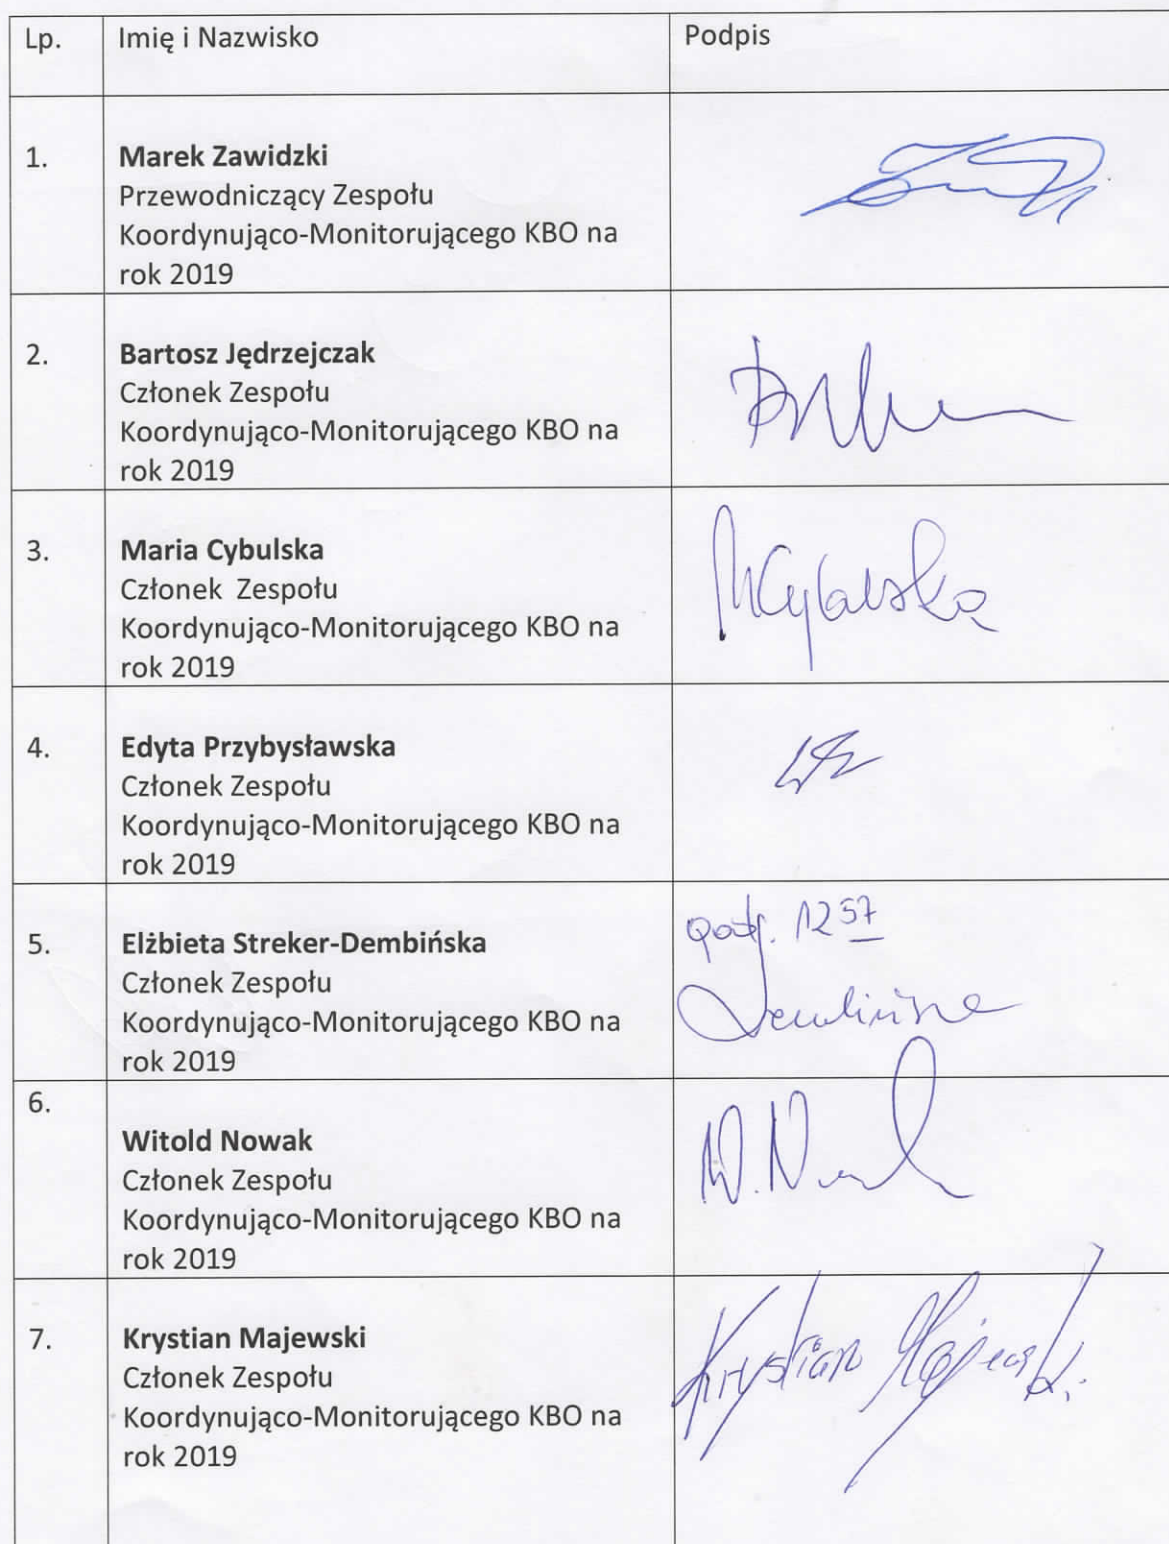 Lp. Imię i Nazwisko Podpis
1. Marek Zawidzki
Przewodniczący Zespołu
Koordynująco-Monitorującego KBO na
rok 2019
2. Bartosz Jędrzejczak
Członek Zespołu
Koordynująco-Monitorującego KBO na
rok 2019
3. Maria Cybulska MCybulska
Członek Zespołu
Koordynująco-Monitorującego KBO na
rok 2019
4. Edyta Przybysławska
Członek Zespołu
Koordynująco-Monitorującego KBO na
rok 2019
1257
5. Elżbieta Streker-Dembińska
Członek Zespołu
Koordynująco-Monitorującego KBO na
rok 2019
6.
Witold Nowak W. Nowak
Członek Zespołu
Koordynująco-Monitorującego KBO na
rok 2019
7. Krystian Majewski Krystian Majewski
Członek Zespołu
Koordynująco-Monitorującego KBO na
rok 2019